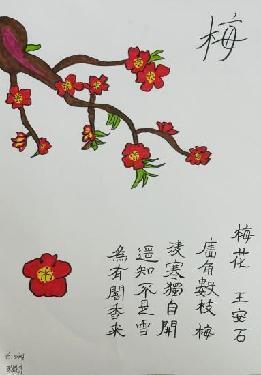 梅
梅花 王安石
廬角數枝梅
淩寒獨自開
遥知不是雪
為有闇香来